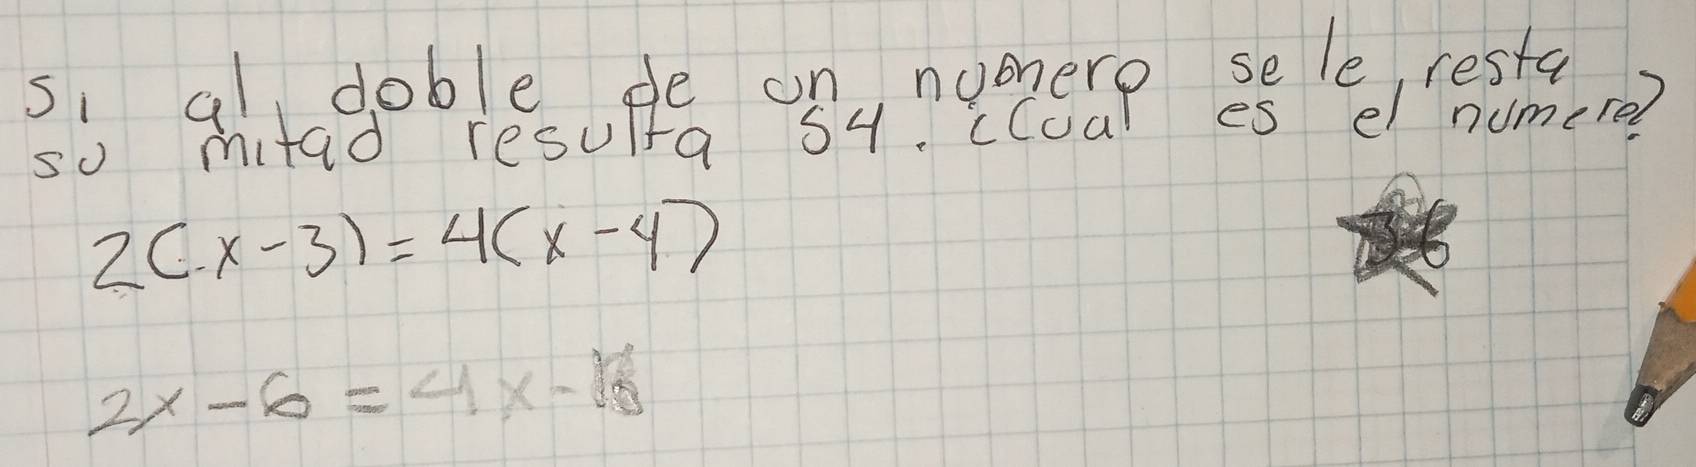 si al doble de un numero se le resta
su mitad resulta 54. ¿Cual es el numero?
2(x-3)=4(x-4)
36
2x-6=4x-16